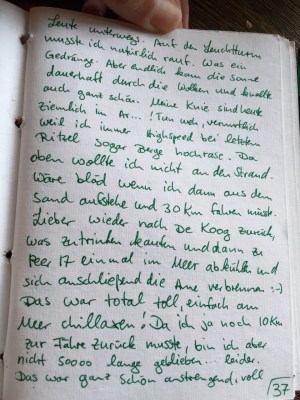 Leute unterwegs. Auf den Leuchtturm
musste ich natürlich rauf. Was ein
Gedräng. Aber endlich kam die Sonne
dauerhaft durch die Wolken und knallte
auch ganz schön. Meine Knie sind heute
ziemlich im Ar...! Tun weh, vermutlich
weil ich immer Highspeed bei letztem
Ritzel sogar Berge hochrase. Da
oben wollte ich nicht an den Strand.
Wäre blöd wenn ich dann aus dem
Sand aufstehe und 30 Km fahren müsste.
Lieber wieder nach De Koog zurück,
was zu trinken kaufen und dann zu
Peer 17 einmal im Meer abkühlen und
sich anschließend die Arme verbrennen :-)
Das war total toll, einfach am
Meer chillaxen! Da ich ja noch 10 Km
zur Fähre zurück musste, bin ich aber
nicht soooo lange geblieben... leider.
Das war ganz schön anstrengend, voll
37